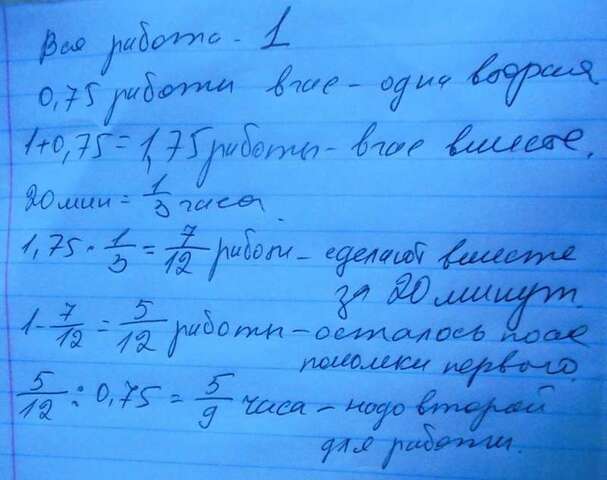 Вся работа - 1
0,75 работы в час - одна вторая
1+0,75=1,75 работы - в час вместе.
20 мин = 1/3 часа.
1,75 · 1/3 = 7/12 работы - сделают вместе
за 20 минут.
1 - 7/12 = 5/12 работы - осталось после
поломки первого.
5/12 : 0,75 = 5/9 часа - надо второй
для работы.